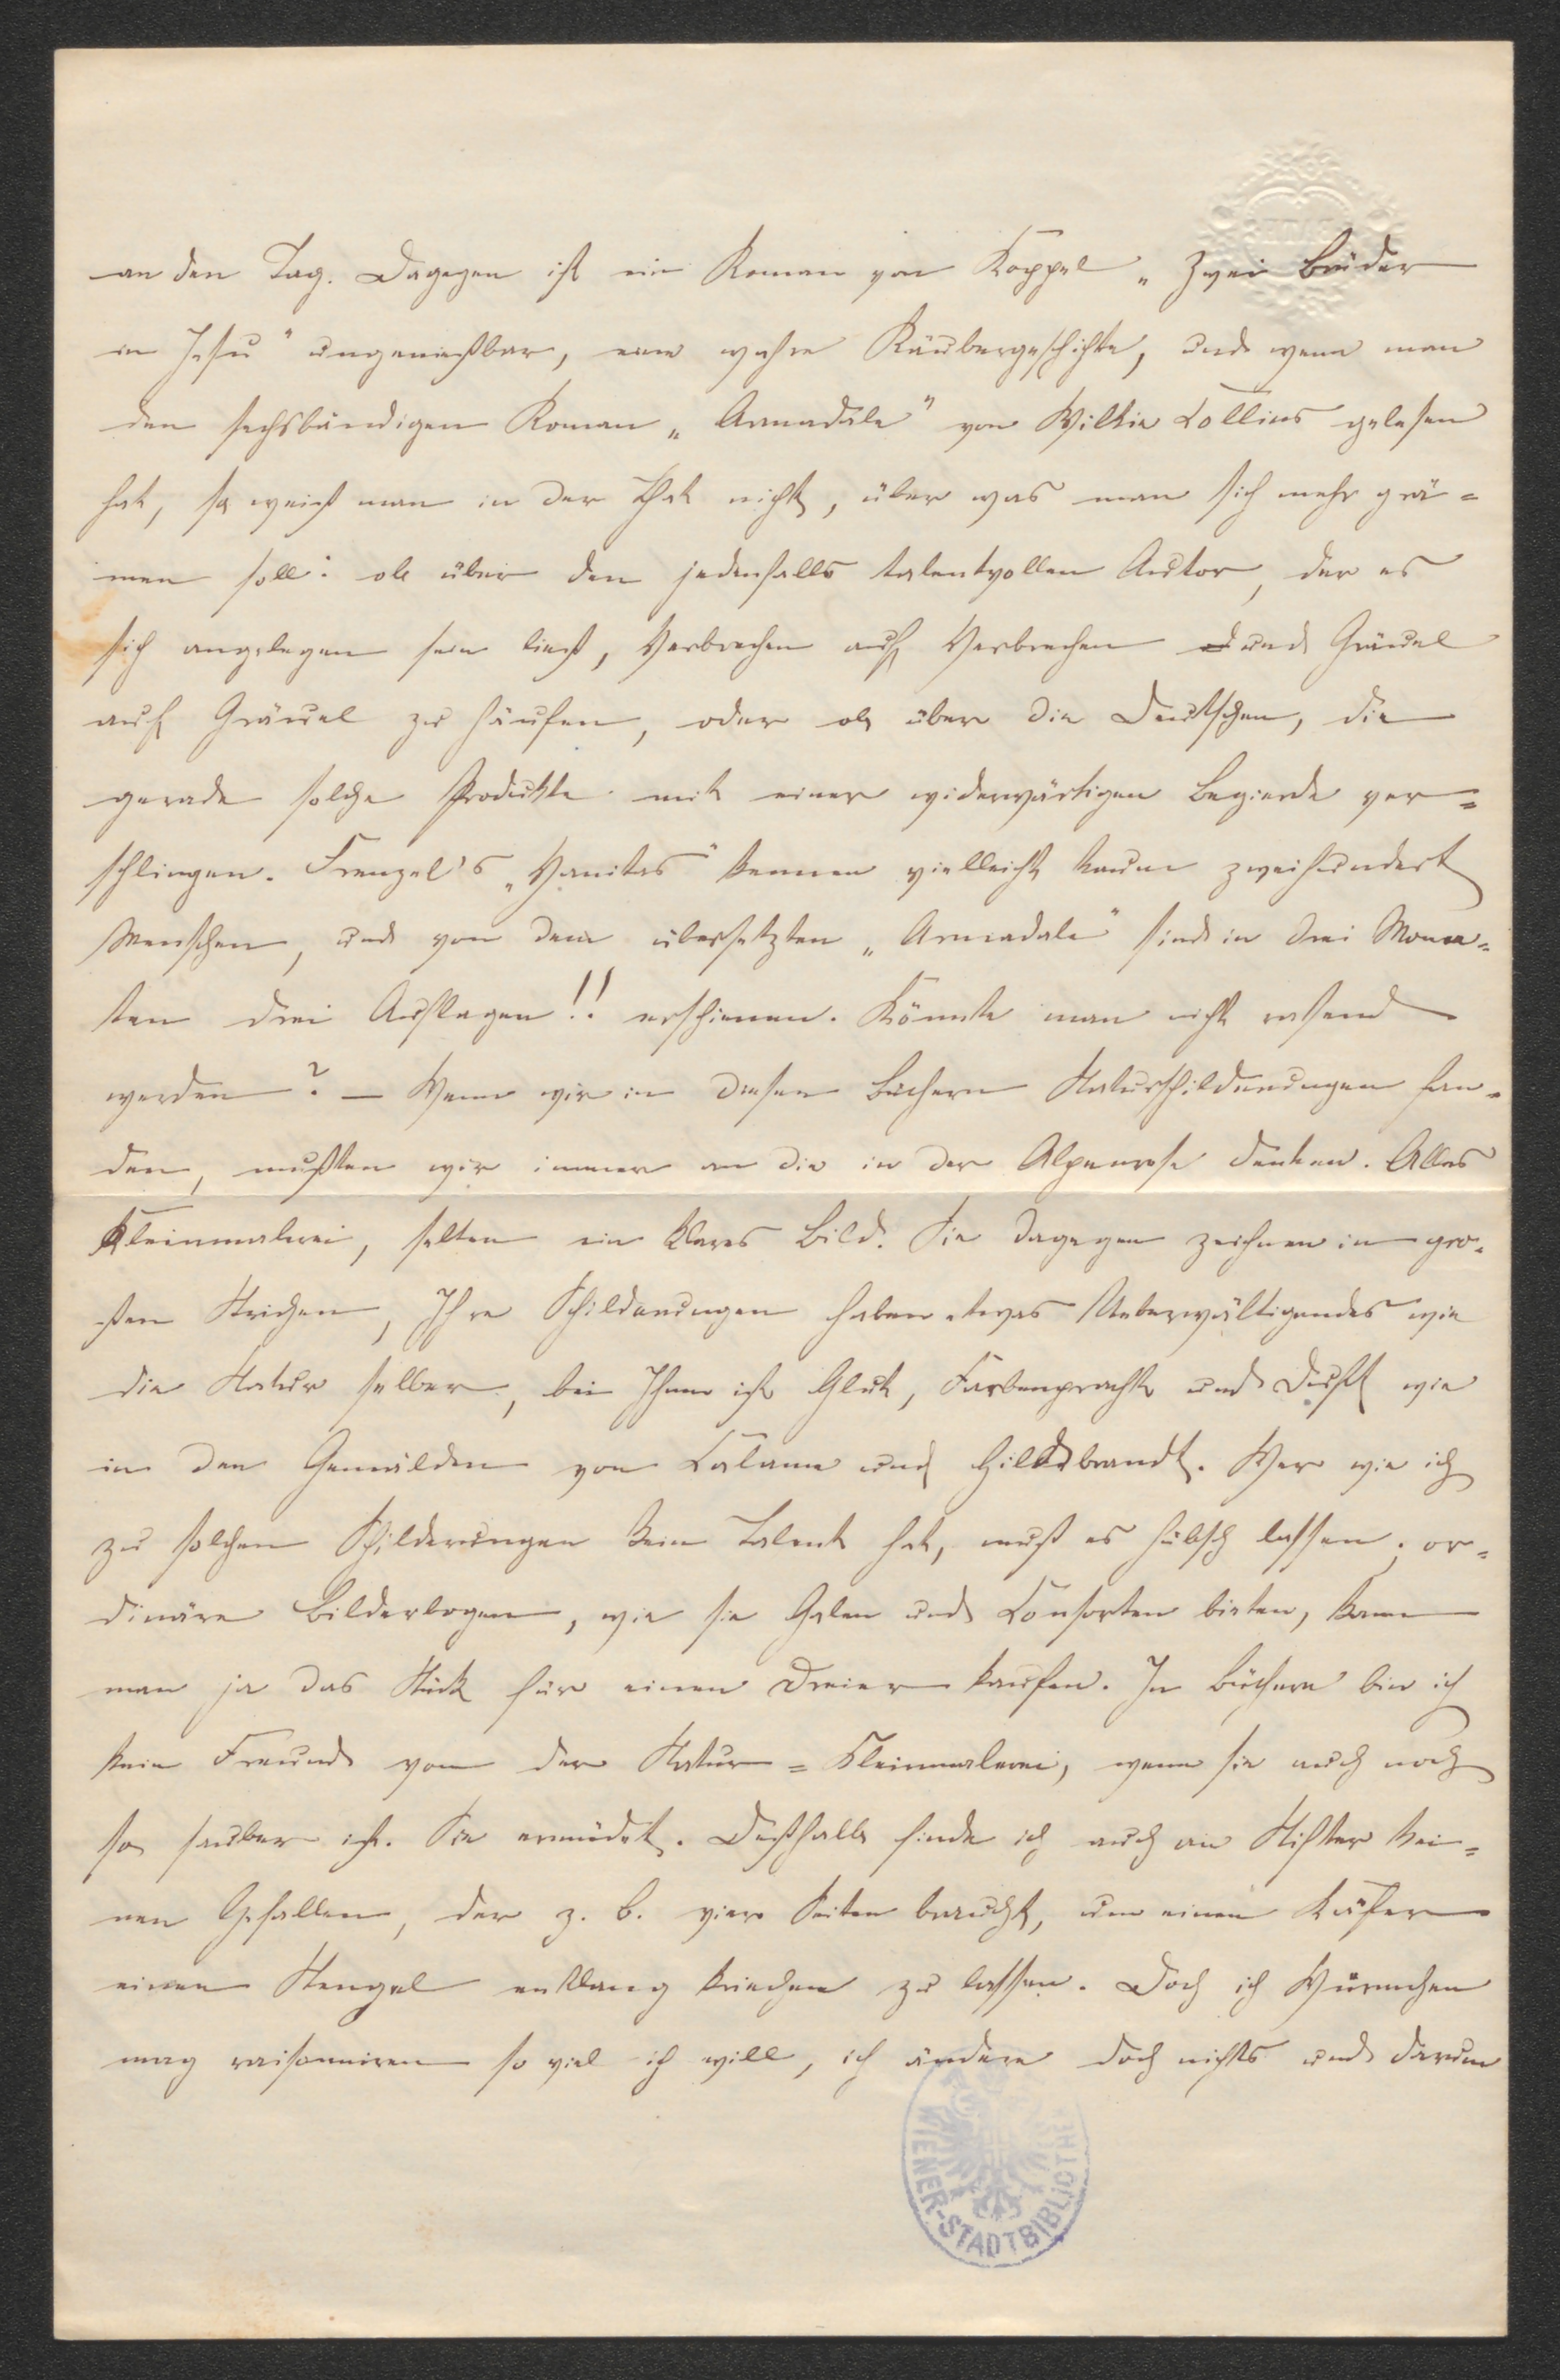 an den Tag. Dagegen ist ein Roman von Koppel „Zwei Brüder
in Jesu" ungenießbar, eine wahre Räubergeschichte, und wenn man
den sechsbändigen Roman „Armadale" von Wilkie Collins gelesen
hat, so weiß man in der That nicht, über was man sich mehr grä=
men soll: ob über den jedenfalls talentvollen Autor, der es
sich angelegen sein ließ, Verbrechen auf Verbrechen und Gräuel
auf Gräuel zu häufen, oder ob über die Deutschen, die
gerade solche Produkte mit einer widerwärtigen Begierde ver=
schlingen. Frenzel's „Vanitas" kennen vielleicht kaum zweihundert
Menschen, und von dem übersetzten „Armadale" sind in drei Mona=
ten drei Auflagen!! erschienen. Könnte man nicht rasend
werden? — Wenn wir in diesen Büchern Naturschilderungen fan=
den, mußten wir immer an die in der Alpenrose denken. Alles
Kleinmalerei, selten ein klares Bild. Sie dagegen zeichnen in gro=
ßen Strichen, Ihre Schilderungen haben etwas Ueberwältigendes wie
die Natur selber, bei Ihnen ist Glut, Farbenpracht und Duft wie
in den Gemälden von Calame und Hildebrandt. Wer wie ich
zu solchen Schilderungen kein Talent hat, muß es hübsch lassen; or=
dinäre Bilderbogen, wie sie Galen und Consorten bieten, kann
man ja das Stück für einen Dreier kaufen. In Büchern bin ich
kein Freund von der Natur=Kleinmalerei, wenn sie auch noch
so sauber ist. Sie ermüdet. Deßhalb finde ich auch an Stifter kei=
nen Gefallen, der z. B. vier Seiten braucht, um einen Käfer
einen Stengel entlang kriechen zu lassen. Doch ich Würmchen
mag raisonniren so viel ich will, ich ändere doch nichts und darum
WIENER-STADTBIBLIOTHEK